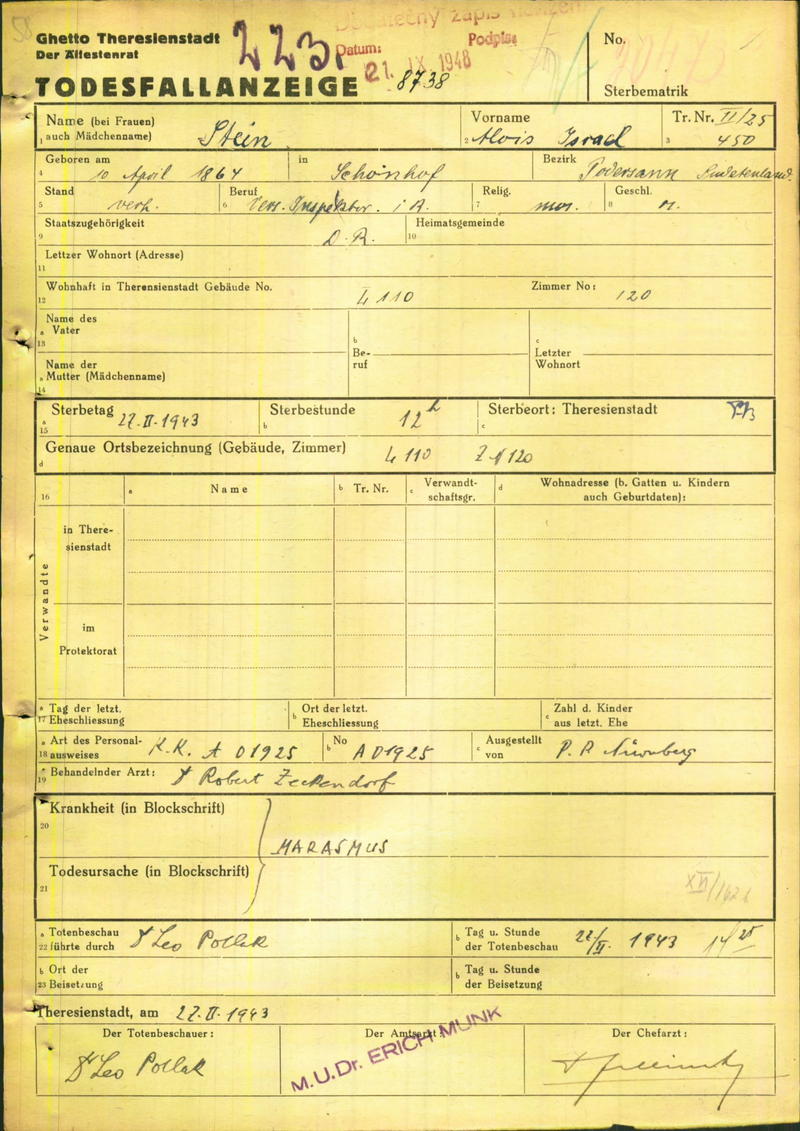 Ghetto Theresienstadt
Der Ältestenrat
TODESFALLANZEIGE
223
Dodatečný zápis
Datum: Podpis:
21. IX 1948
8738
No.
Sterbematrik
Name (bei Frauen) Vorname Tr. Nr. II/25
1 auch Mädchenname) Stein 2 Alois Israel 3 450
Geboren am in Bezirk
4 10 April 1864 Schönhof Podersam Sudetenland.
Stand Beruf Relig. Geschl.
5 verh. 6 Vers. Inspektor. i R. 7 mos. 8 m.
Staatszugehörigkeit Heimatsgemeinde
9 D. R. 10
Letzter Wohnort (Adresse)
11
Wohnhaft in Theresienstadt Gebäude No. Zimmer No:
12 L 110 120
Name des
a Vater
13
Name der
a Mutter (Mädchenname)
14
b
Be-
ruf
c
Letzter
Wohnort
Sterbetag 27. II. 1943 Sterbestunde 12h Sterbeort: Theresienstadt
a 15 b c
Genaue Ortsbezeichnung (Gebäude, Zimmer) L 110 Z 120
d
16 a Name b Tr. Nr. c Verwandt-
schaftsgr. d Wohnadresse (b. Gatten u. Kindern
auch Geburtdaten):
Verwandte
in There-
sienstadt
im
Protektorat
a Tag der letzt. Ort der letzt. Zahl d. Kinder
17 Eheschliessung b Eheschliessung c aus letzt. Ehe
a Art des Personal- K.K. A 01925 No A 01925 Ausgestellt P. P. Nürnberg
18 ausweises b c von
19 Behandelnder Arzt: Dr Robert Zeckendorf
Krankheit (in Blockschrift)
20
MARASMUS
Todesursache (in Blockschrift)
21
XII/162
a Totenbeschau b Tag u. Stunde
22 führte durch Dr Leo Pollak der Totenbeschau 27/II. 1943 14 25
b Ort der b Tag u. Stunde
23 Beisetzung der Beisetzung
Theresienstadt, am 27. II. 1943
Der Totenbeschauer: Der Amtsarzt: Der Chefarzt:
Dr Leo Pollak
M.U.Dr. ERICH MUNK